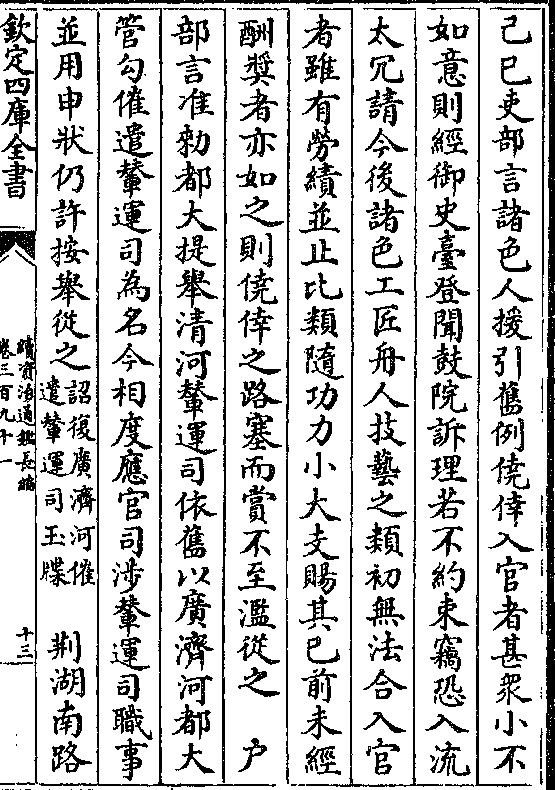 己巳吏部言諸色人援引舊例僥倖入官者甚衆小不
如意則經御史臺登聞鼓院訴理若不約束竊恐入流
太冗請今後諸色工匠舟人技藝之類初無法合入官
者雖有勞績並止比類隨功力小大支賜其已前未經
酬奬者亦如之則僥倖之路塞而賞不至濫從之　户
部言准勅都大提舉清河輦運司依舊以廣濟河都大
管勾催遣輦運司為名今相度應官司涉輦運司職事
並用申狀仍許按舉從之詔復廣濟河催遣輦運司玉牒　荆湖南路
欽定四庫全書
續資治通鑑長編
卷三百九十一
十三